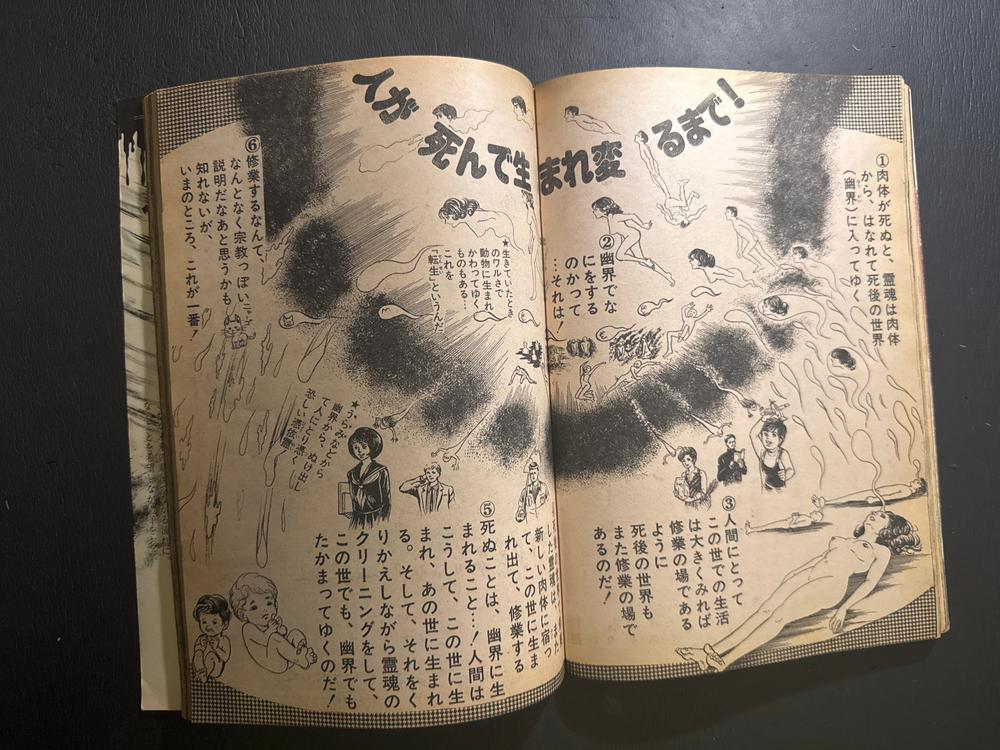 人が死んで生まれ変るまで！
①肉体が死ぬと、霊魂は肉体
から、はなれて死後の世界
（幽界）に入ってゆく
②幽界でな
にをする
のかって
…それは！
③人間にとって
この世での生活
は大きくみれば
修業の場である
ように
死後の世界も
また修業の場で
あるのだ！
★生きていたとき
のワルさで
動物に生まれ
かわってゆく
ものもある…
これを
「転生」というんだ
した霊魂は、
新しい肉体に宿っ
て、この世に生ま
れ出て、修業する
⑤死ぬことは、幽界に生
まれること…！人間は
こうして、この世に生
まれ、あの世に生まれ
る。そして、それをく
りかえしながら霊魂の
クリーニングをして、
この世でも、幽界でも
たかまってゆくのだ！
★うらみなどから
幽界から、ぬけ出し
て人にとり憑く
恐しい憑依霊
⑥修業するなんて、
なんとなく宗教っぽい
説明だなあと思うかも
知れないが、
いまのところ、これが一番！
ニャーン